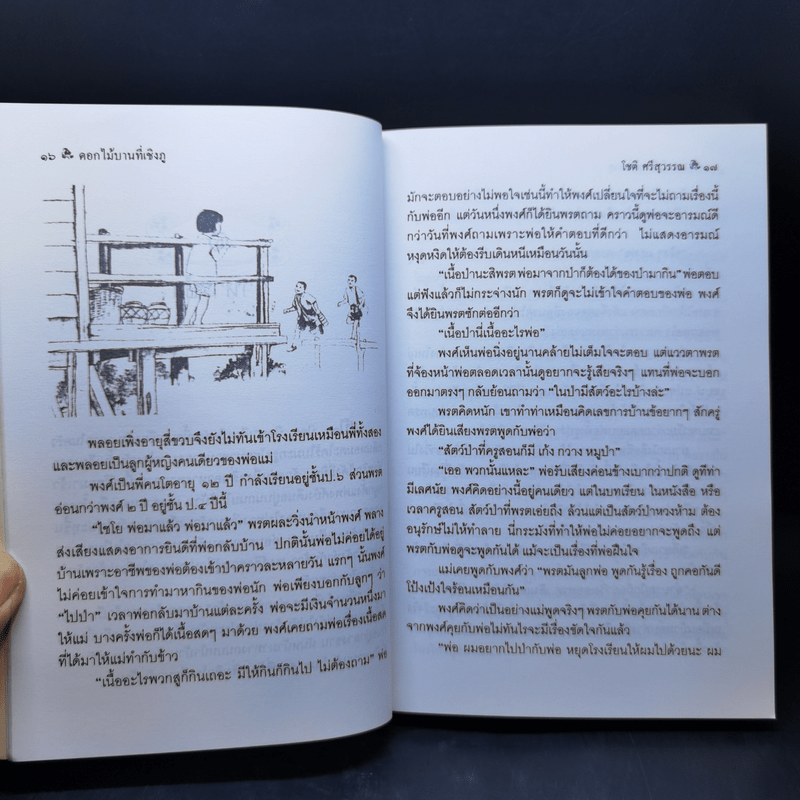 ๑๖ ดอกไม้บานที่เชิงภู
พลอยเพิ่งอายุสี่ขวบจึงยังไม่ทันเข้าโรงเรียนเหมือนพี่ทั้งสอง
และพลอยเป็นลูกผู้หญิงคนเดียวของพ่อแม่
พงศ์เป็นพี่คนโตอายุ ๑๒ ปี กำลังเรียนอยู่ชั้นป.๖ ส่วนพรต
อ่อนกว่าพงศ์ ๒ ปี อยู่ชั้น ป.๔ ปีนี้
“ไชโย พ่อมาแล้ว พ่อมาแล้ว” พรตผละวิ่งนำหน้าพงศ์ พลาง
ส่งเสียงแสดงอาการยินดีที่พ่อกลับบ้าน ปกตินั้นพ่อไม่ค่อยได้อยู่
บ้านเพราะอาชีพของพ่อต้องเข้าป่าคราวละหลายวัน แรกๆ นั้นพงศ์
ไม่ค่อยเข้าใจการทำมาหากินของพ่อนัก พ่อเพียงบอกกับลูกๆ ว่า
“ไปป่า” เวลาพ่อกลับมาบ้านแต่ละครั้ง พ่อจะมีเงินจำนวนหนึ่งมา
ให้แม่ บางครั้งพ่อก็ได้เนื้อสดๆ มาด้วย พงศ์เคยถามพ่อเรื่องเนื้อสด
ที่ได้มาให้แม่ทำกับข้าว
“เนื้ออะไรพวกสูก็กินเถอะ มีให้กินก็กินไป ไม่ต้องถาม” พ่อ
โชติ ศรีสุวรรณ ๑๗
มักจะตอบอย่างไม่พอใจเช่นนี้ทำให้พงศ์เปลี่ยนใจที่จะไม่ถามเรื่องนี้
กับพ่ออีก แต่วันหนึ่งพงศ์ก็ได้ยินพรตถาม คราวนี้ดูพ่อจะอารมณ์ดี
กว่าวันที่พงศ์ถามเพราะพ่อให้คำตอบที่ดีกว่า ไม่แสดงอารมณ์
หงุดหงิดให้ต้องรีบเดินหนีเหมือนวันนั้น
“เนื้อป่านะสิพรต พ่อมาจากป่าก็ต้องได้ของป่ามากิน” พ่อตอบ
แต่ฟังแล้วก็ไม่กระจ่างนัก พรตก็ดูจะไม่เข้าใจคำตอบของพ่อ พงศ์
จึงได้ยินพรตซักต่ออีกว่า
“เนื้อป่านี่เนื้ออะไรพ่อ”
พงศ์เห็นพ่อนิ่งอยู่นานคล้ายไม่เต็มใจจะตอบ แต่แววตาพรต
ที่จ้องหน้าพ่อตลอดเวลานั้นดูอยากจะรู้เสียจริงๆ แทนที่พ่อจะบอก
ออกมาตรงๆ กลับย้อนถามว่า “ในป่ามีสัตว์อะไรบ้างล่ะ”
พรตคิดหนัก เขาทำท่าเหมือนคิดเลขการบ้านข้อยากๆ สักครู่
พงศ์ได้ยินเสียงพรตพูดกับพ่อว่า
“สัตว์ป่าที่ครูสอนก็มี เก้ง กวาง หมูป่า”
“เออ พวกนั้นแหละ” พ่อรับเสียงค่อนข้างเบากว่าปกติ ดูทีท่า
มีเลศนัย พงศ์คิดอย่างนี้อยู่คนเดียว แต่ในบทเรียน ในหนังสือ หรือ
เวลาครูสอน สัตว์ป่าที่พรตเอ่ยถึง ล้วนแต่เป็นสัตว์ป่าหวงห้าม ต้อง
อนุรักษ์ไม่ให้ทำลาย นี่กระมังที่ทำให้พ่อไม่ค่อยอยากจะพูดถึง แต่
พรตกับพ่อดูจะพูดกันได้ แม้จะเป็นเรื่องที่พ่อฝืนใจ
แม่เคยพูดกับพงศ์ว่า “พรตมันลูกพ่อ พูดกันรู้เรื่อง ถูกคอกันดี
โป้งเป้งใจร้อนเหมือนกัน”
พงศ์คิดว่าเป็นอย่างแม่พูดจริงๆ พรตกับพ่อคุยกันได้นาน ต่าง
จากพงศ์คุยกับพ่อไม่ทันไรจะมีเรื่องขัดใจกันแล้ว
“พ่อ ผมอยากไปป่ากับพ่อ หยุดโรงเรียนให้ผมไปด้วยนะ ผม